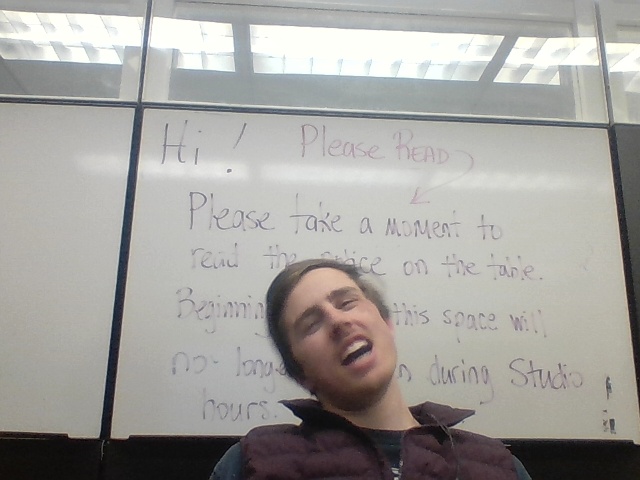 Hi! Please READ
Please take a moment to
read the on the table.
Beginning this space will
no-longe during Studio
hours.